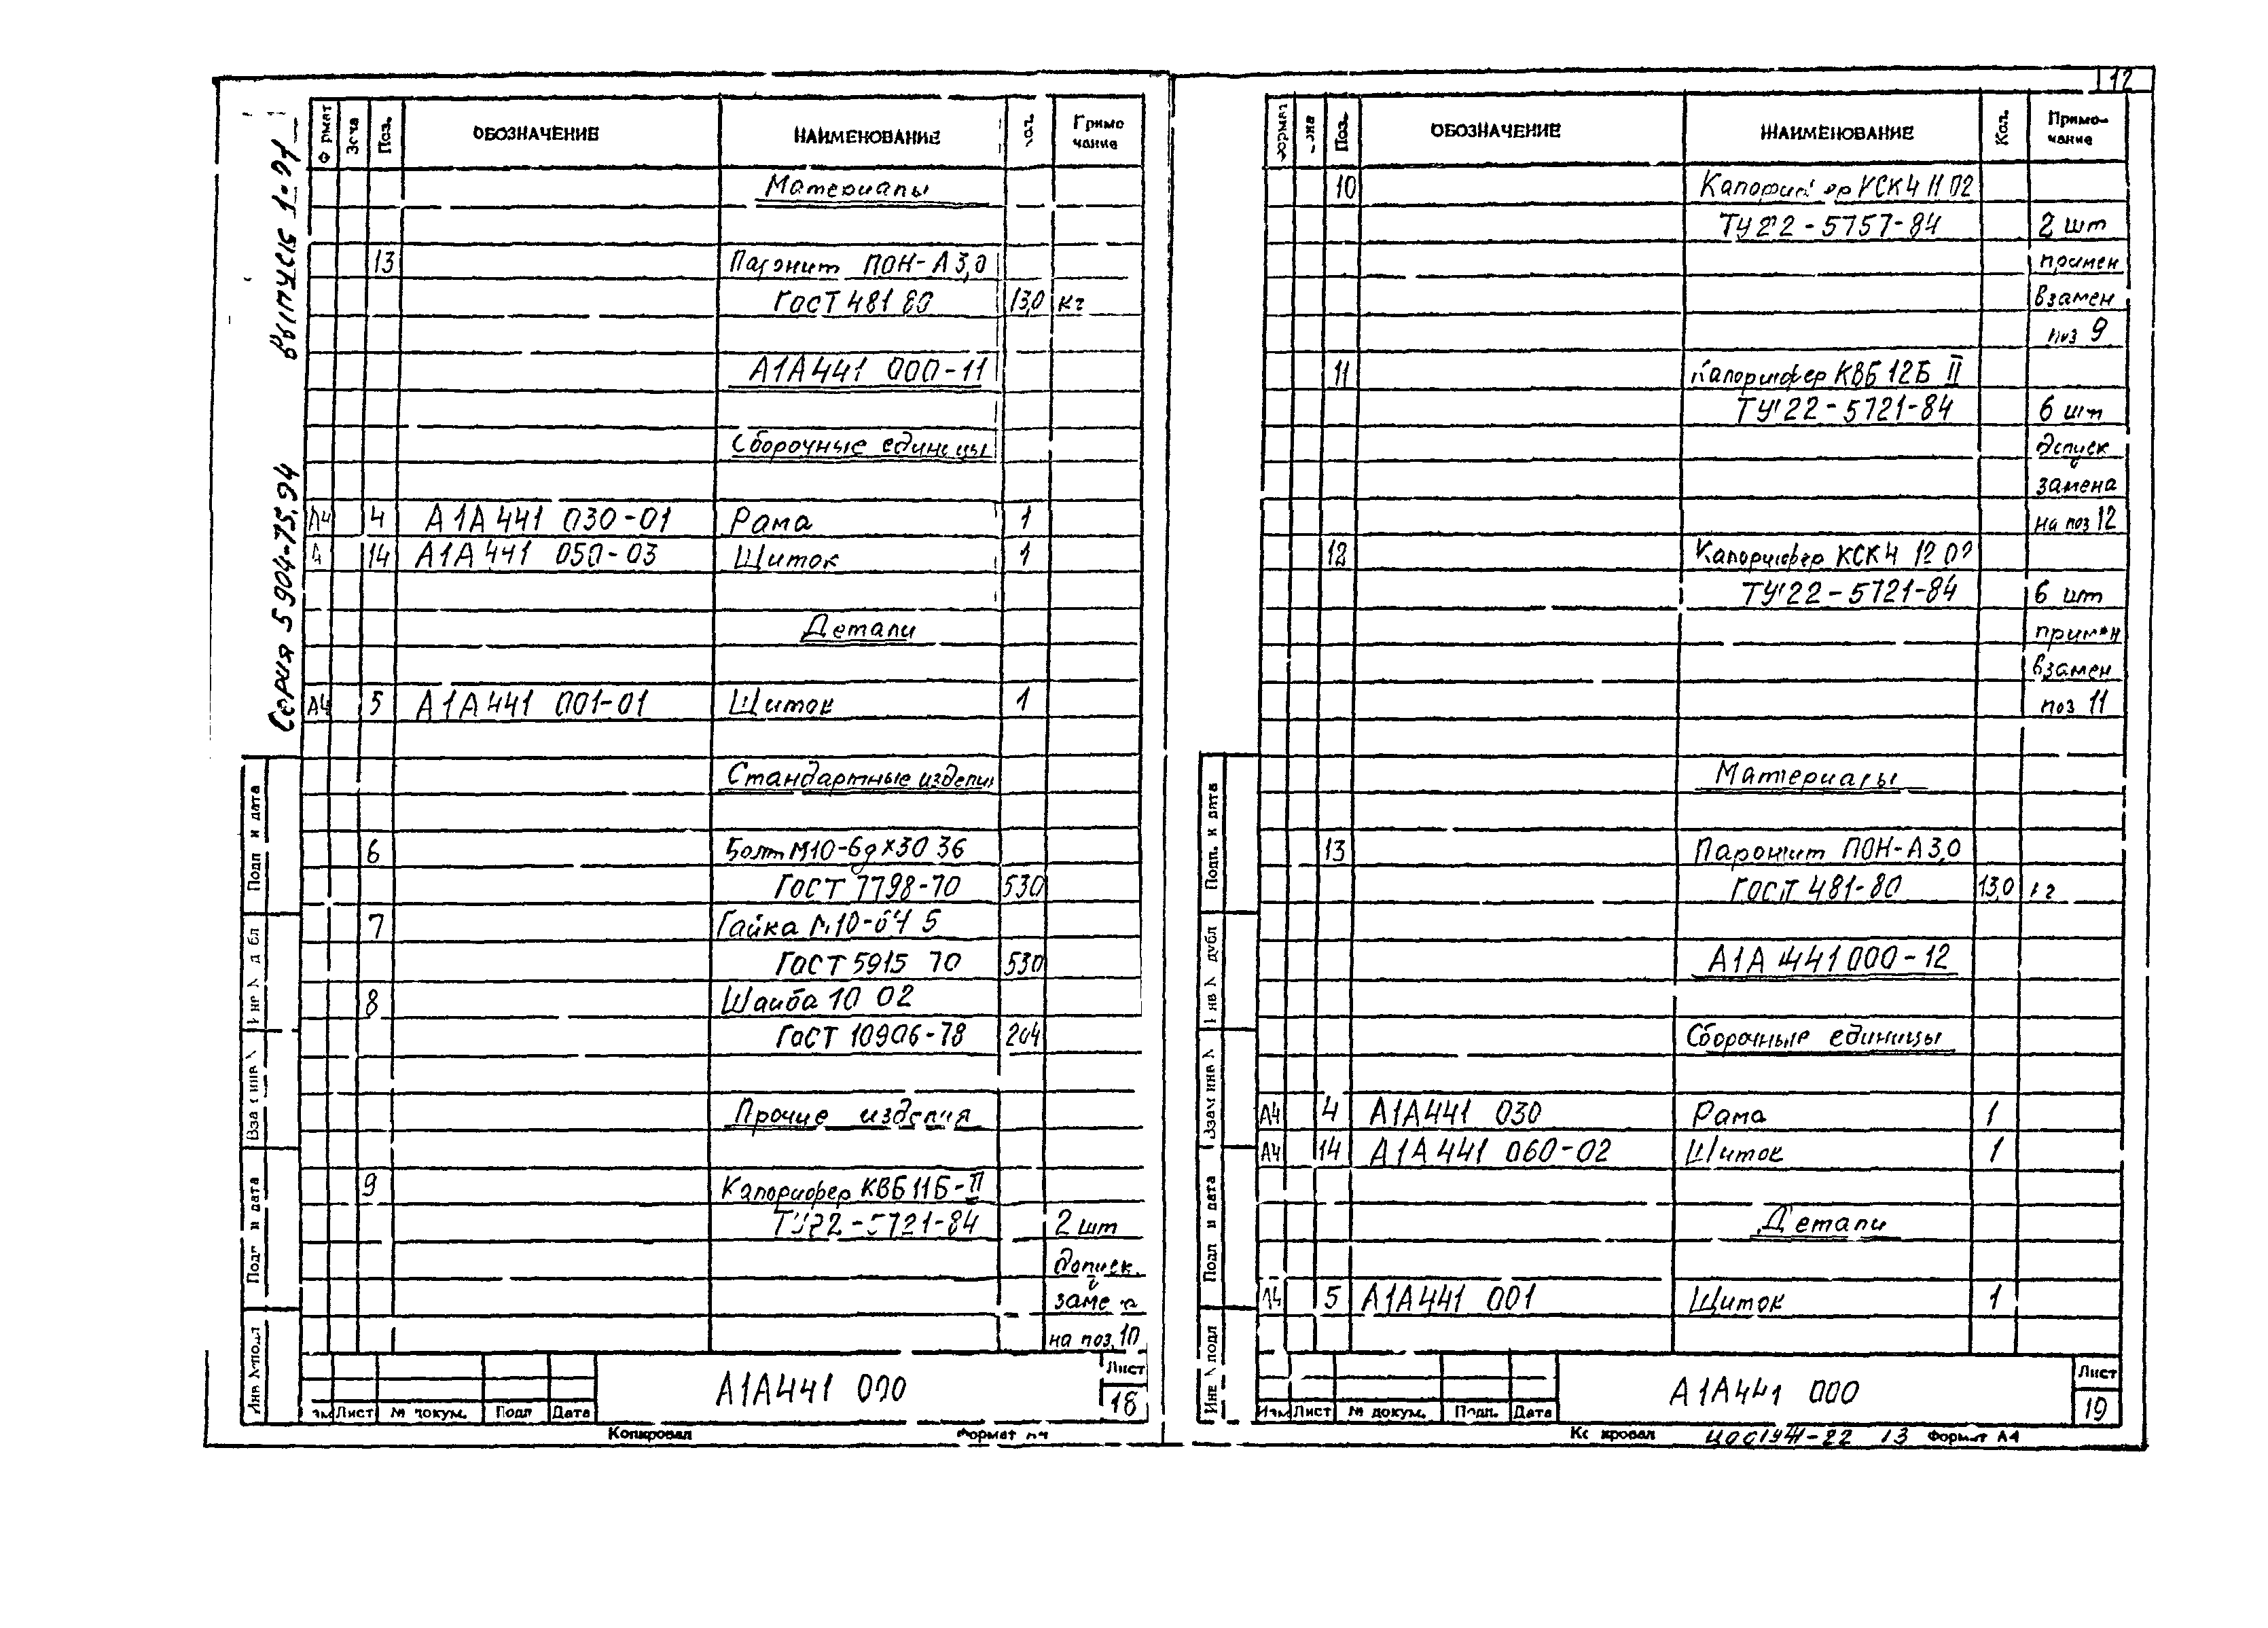 12
Серия 5 904-75.94
выпуск 1-
Зона
Поз.
ОБОЗНАЧЕНИЕ
НАИМЕНОВАНИЕ
чание
Материалы
13 Паронит ПОН-А 3,0
ГОСТ 481 80 13,0 кг
А1А441 000-11
Сборочные единицы
А4 4 А1А441 030-01 Рама 1
14 А1А441 050-03 Щиток 1
Детали
А4 5 А1А441 001-01 Щиток 1
Стандартные изделия
6 Болт М10-6gх30 36
ГОСТ 7798-70 530
7 Гайка М10-6Н 5
ГОСТ 5915 70 530
8 Шайба 10 02
ГОСТ 10906-78 204
Прочие изделия
9 Калорифер КВБ 11Б-П
ТУ22-5721-84 2 шт
допуск.
замена
на поз.10
Подп и дата
Подп и дата
Лист
№ докум.
Подп
Дата
А1А441 000
Лист
18
Копировал
Формат А4
Поз.
ОБОЗНАЧЕНИЕ
НАИМЕНОВАНИЕ
Кол.
Приме-
чание
10 Калорифер КСК4 11 02
ТУ22-5757-84 2 шт
примен
взамен
поз 9
11 Калорифер КВБ 12Б П
ТУ22-5721-84 6 шт
допуск
замена
на поз 12
12 Калорифер КСК4 12 02
ТУ22-5721-84 6 шт
примен
взамен
поз 11
Материалы
13 Паронит ПОН-А 3,0
ГОСТ 481-80 13,0 кг
А1А 441 000-12
Сборочные единицы
А4 4 А1А441 030 Рама 1
А4 14 А1А441 060-02 Щиток 1
Детали
А4 5 А1А441 001 Щиток 1
Подп. и дата
Взам инв №
Подп и дата
Изм
Лист
№ докум.
Подп.
Дата
А1А441 000
Лист
19
Копировал
13
Формат А4